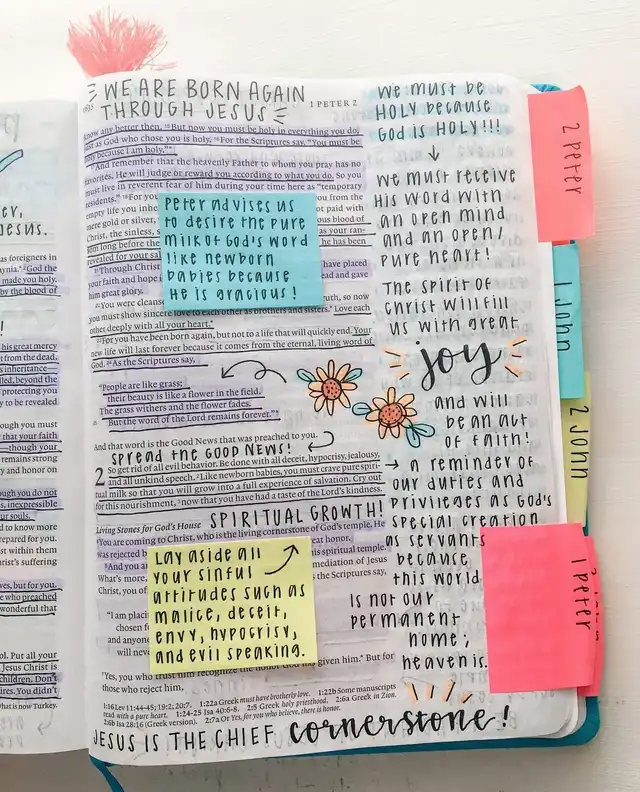 er,
Jesus.
as foreigners in
God the
made you holy.
by the blood of
his great mercy
from the dead.
inheritance—
beyond the
protecting you
to be revealed
ough you must
that your faith
—though your
remains strong
y and honor on
ough you do not
s, inexpressible
our souls.
ore prepared
epared for you.
st within them
hrist's suffering
ves, but for you.
who preached
wonderful that
ol. Put all your
Jesus Christ is
children. Don't
ires. You didn't
hat is now Turkey.
WE ARE BORN AGAIN
THROUGH JESUS
1 PETER 2
know any better then. 15But now you must be holy in everything you do,
just as God who chose you is holy. 16For the Scriptures say, "You must be
holy because I am holy."*
17And remember that the heavenly Father to whom you pray has no
favorites. He will judge or reward you according to what you do. So you
must live in reverent fear of him during your time here as "temporary
residents." 18For you
empty life you inhe
mere gold or silver,
Christ, the sinless, s
him long before the
revealed for your sa
Through Christ
your faith and hope
him great glory.
22You were cleanse
you must show sincere love to each other as brothers and sisters.* Love each
other deeply with all your heart.*
23For you have been born again, but not to a life that will quickly end. Your
new life will last forever because it comes from the eternal, living word of
God. 24As the Scriptures say,
"People are like grass;
their beauty is like a flower in the field.
The grass withers and the flower fades.
But the word of the Lord remains forever."*
And that word is the Good News that was preached to you.
SPREAD THE GOOD NEWS!
2 So get rid of all evil behavior. Be done with all deceit, hypocrisy, jealousy,
and all unkind speech. 2Like newborn babies, you must crave pure spiri-
tual milk so that you will grow into a full experience of salvation. Cry out
for this nourishment, 3now that you have had a taste of the Lord's kindness.
SPIRITUAL GROWTH!
Living Stones for God's House
4You are coming to Christ, who is the living cornerstone of God's temple. He
was rejected b
5And you a
What's more,
Christ, you of
"I am placi
chosen f
and anyone
will neve
7Yes, you who trust him recognize the honor God has given him.* But for
those who reject him,
1:16 Lev 11:44-45; 19:2; 20:7. 1:22a Greek must have brotherly love. 1:22b Some manuscripts
read with a pure heart. 1:24-25 Isa 40:6-8. 2:5 Greek holy priesthood. 2:6a Greek in Zion.
2:6b Isa 28:16 (Greek version). 2:7a Or Yes, for you who believe, there is honor.
JESUS IS THE CHIEF cornerstone!
Peter advises us
to desire the pure
milk of God's word
like newborn
babies because
He is gracious!
Lay aside all
your sinful
attitudes such as
malice, deceit,
envy, hypocrisy,
and evil speaking.
We must be
HOLY because
God is HOLY!!!
We must receive
His word with
an open mind
and an open/
pure heart!
The spirit of
Christ will fill
us with great
joy
and will
be an act
of faith!
a reminder of
our duties and
privileges as God's
special creation
as servants
because
this world
is not our
permanent
home;
heaven is.
2 Peter
1 John
2 John
1 Peter